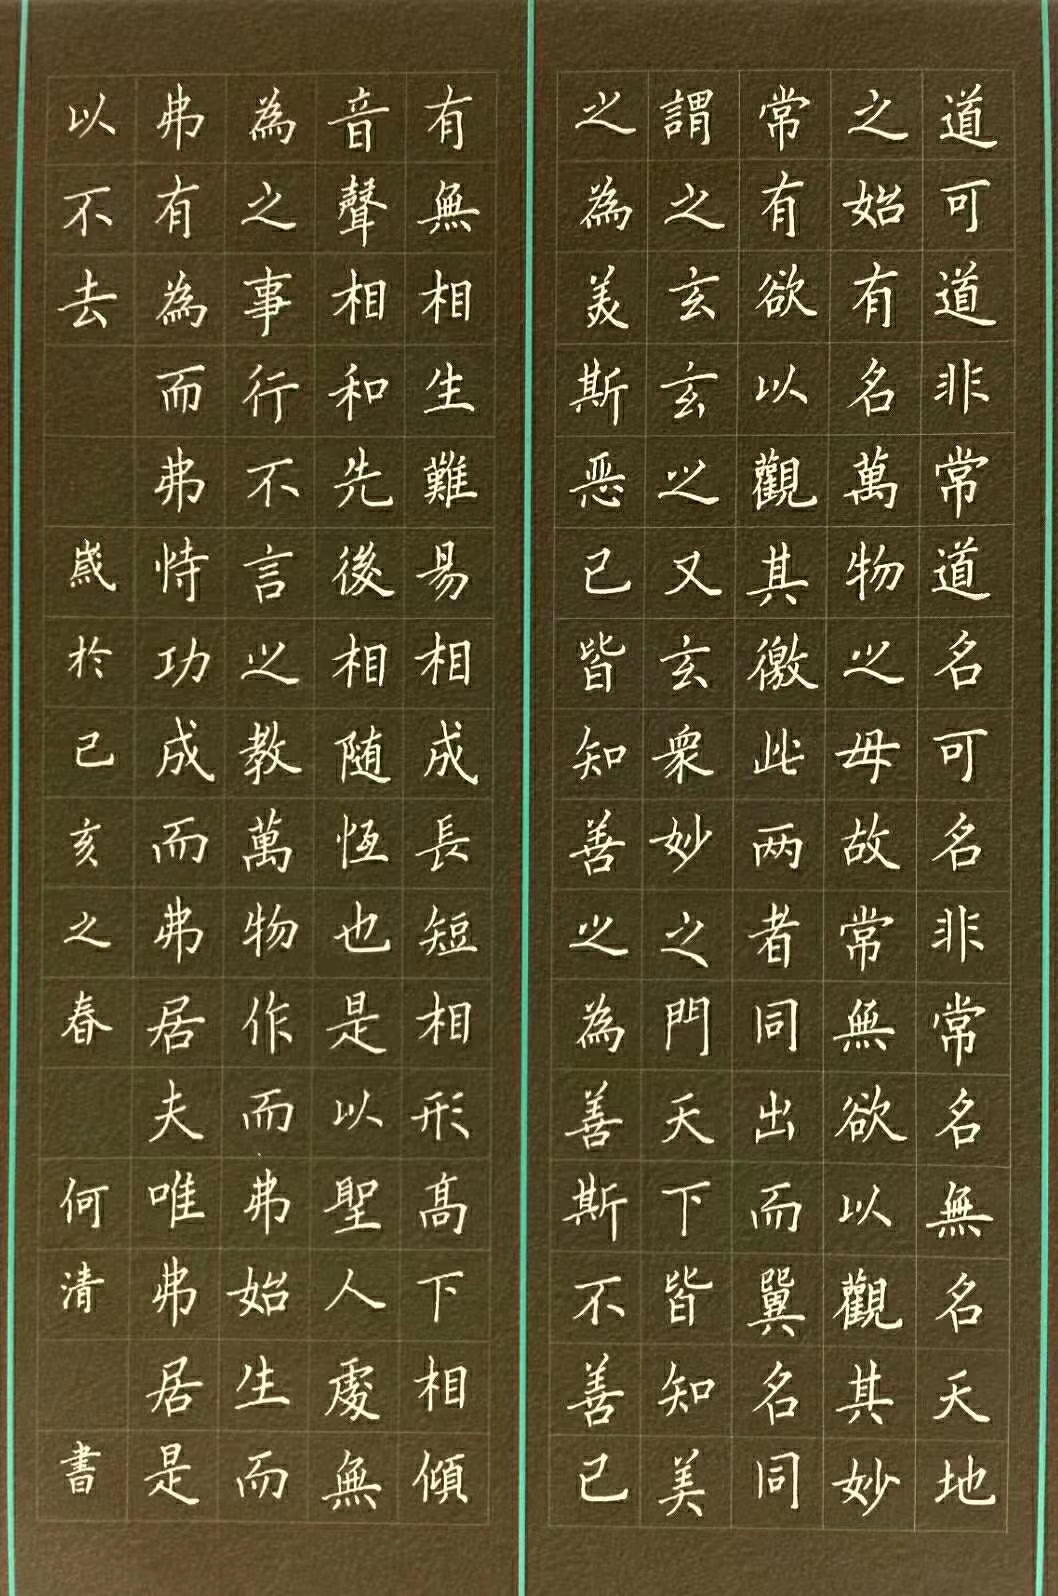 道可道非常道名可名非常名無名天地
之始有名萬物之母故常無欲以觀其妙
常有欲以觀其徼此两者同出而異名同
謂之玄玄之又玄衆妙之門天下皆知美
之為美斯恶已皆知善之為善斯不善已
有無相生難易相成長短相形髙下相傾
音聲相和先後相随恆也是以聖人處無
為之事行不言之教萬物作而弗始生而
弗有為而弗恃功成而弗居夫唯弗居是
以不去 歲於己亥之春 何清 書